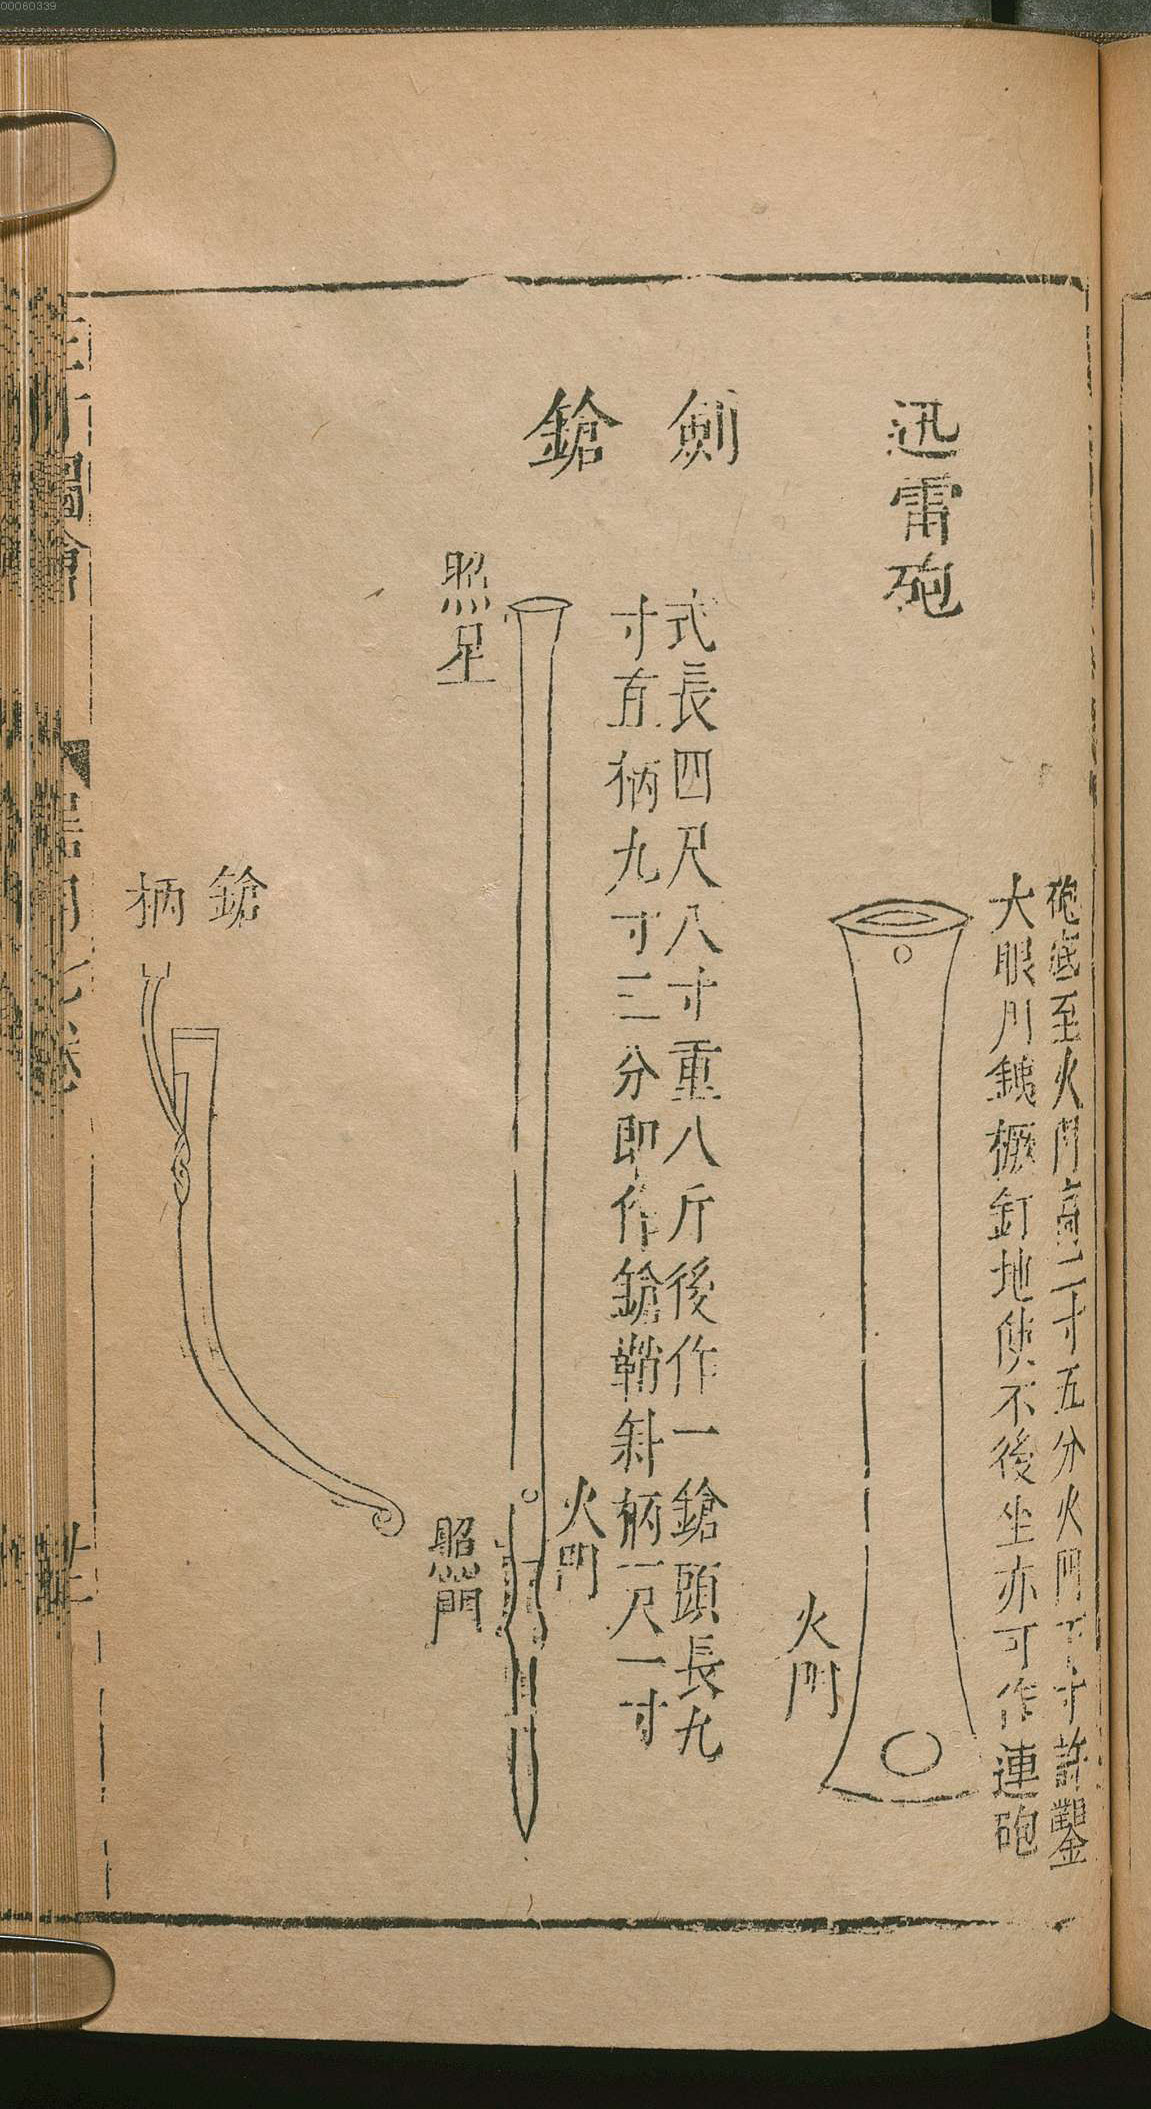 00060339
迅雷砲
砲底至火門高二寸五分火門下寸許鑿
大眼用鐵橛釘地使不後坐亦可作連砲
火門
劍
鎗
式長四尺八寸重八斤後作一鎗頭長九
寸直柄九寸三分即作鎗鞘斜柄一尺一寸
火門
照星
照門
鎗
柄
三才圖會